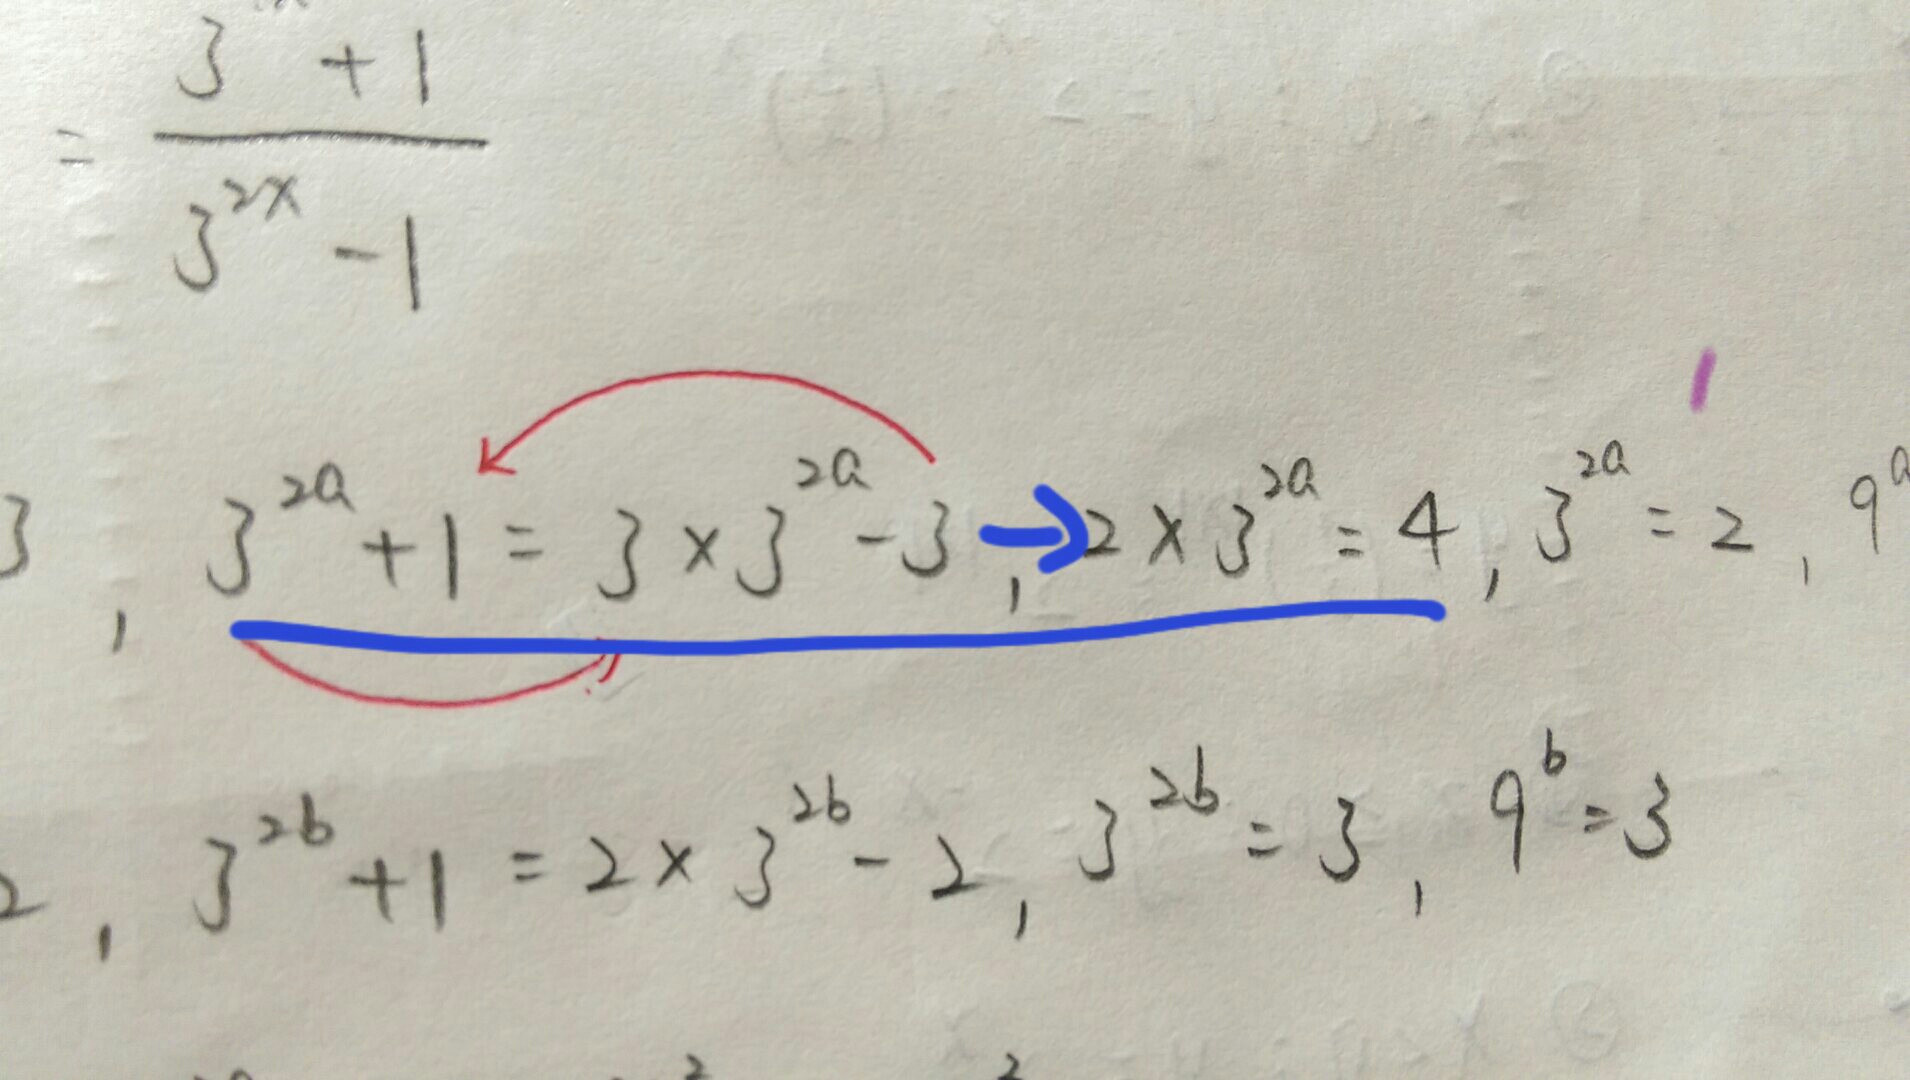 3 + 1
=
3^{2x} - 1
3, 3^{2a} + 1 = 3 × 3^{2a} - 3, 2 × 3^{2a} = 4, 3^{2a} = 2, 9^a
2, 3^{2b} + 1 = 2 × 3^{2b} - 2, 3^{2b} = 3, 9^b = 3